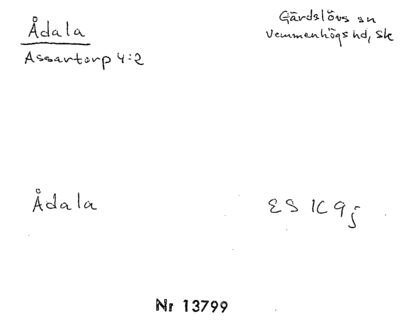 Ådala
Gärdslövs sn
Vemmenhögs hd, Sk
Assartorp 4:2
Ådala
ES 1C 9j
Nr 13799